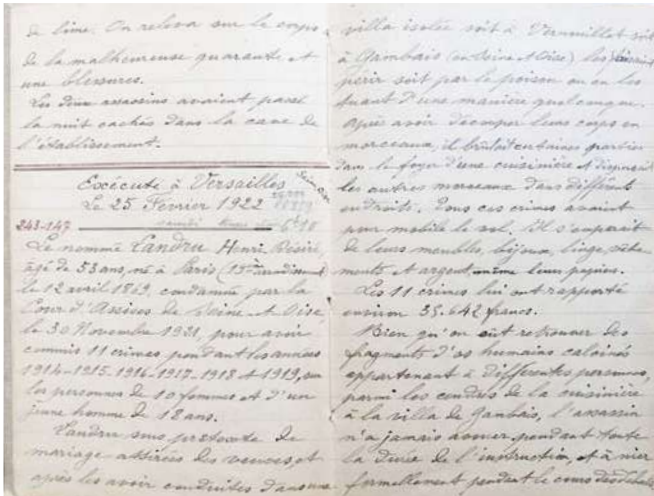 de lime. On releva sur le corps
de la malheureuse quarante et
une blessures.
Les deux assassins avaient passé
la nuit cachés dans la cave de
l'établissement.
Exécuté à Versailles
Le 25 Fevrier 1922
6h10
243-147
Le nommé Landru Henri Désiré
agé de 53 ans, né à Paris (19e arrondiment
le 12 avril 1869, condamné par la
Cour d'Assises de Seine et Oise,
le 30 Novembre 1921, pour avoir
commis 11 crimes pendant les années
1914-1915-1916-1917-1918 et 1919, sur
les personnes de 10 femmes et d'un
jeune homme de 18 ans.
Landru sous pretexte de
mariage attirées des veuves, et
après les avoir conduites dans une
villa isolée soit à Vernouillet soit
à Gambais (en Seine et Oise) les faisait
périr soit par le poison ou en les
tuant d'une manière quelconque.
Après avoir découper leurs corps en
morceaux, il brûlait certaines parties
dans le foyer d'une cuisinière et dispersait
les autres morceaux dans différents
endroits. Tous ces crimes avaient
pour mobile le vol. Il s'emparait
de leurs meubles, bijoux, linge, vête
ments et argent, même leurs papiers.
Les 11 crimes lui ont rapporté
environ 35.642 francs.
Bien qu'on eût retrouver des
fragments d'os humains calcinés
appartenant à différentes personnes,
parmi les cendres de la cuisinière
à la villa de Gambais, l'assassin
n'a jamais avouer pendant toute
la durée de l'instruction, et à nier
formellement pendant le cours des débats